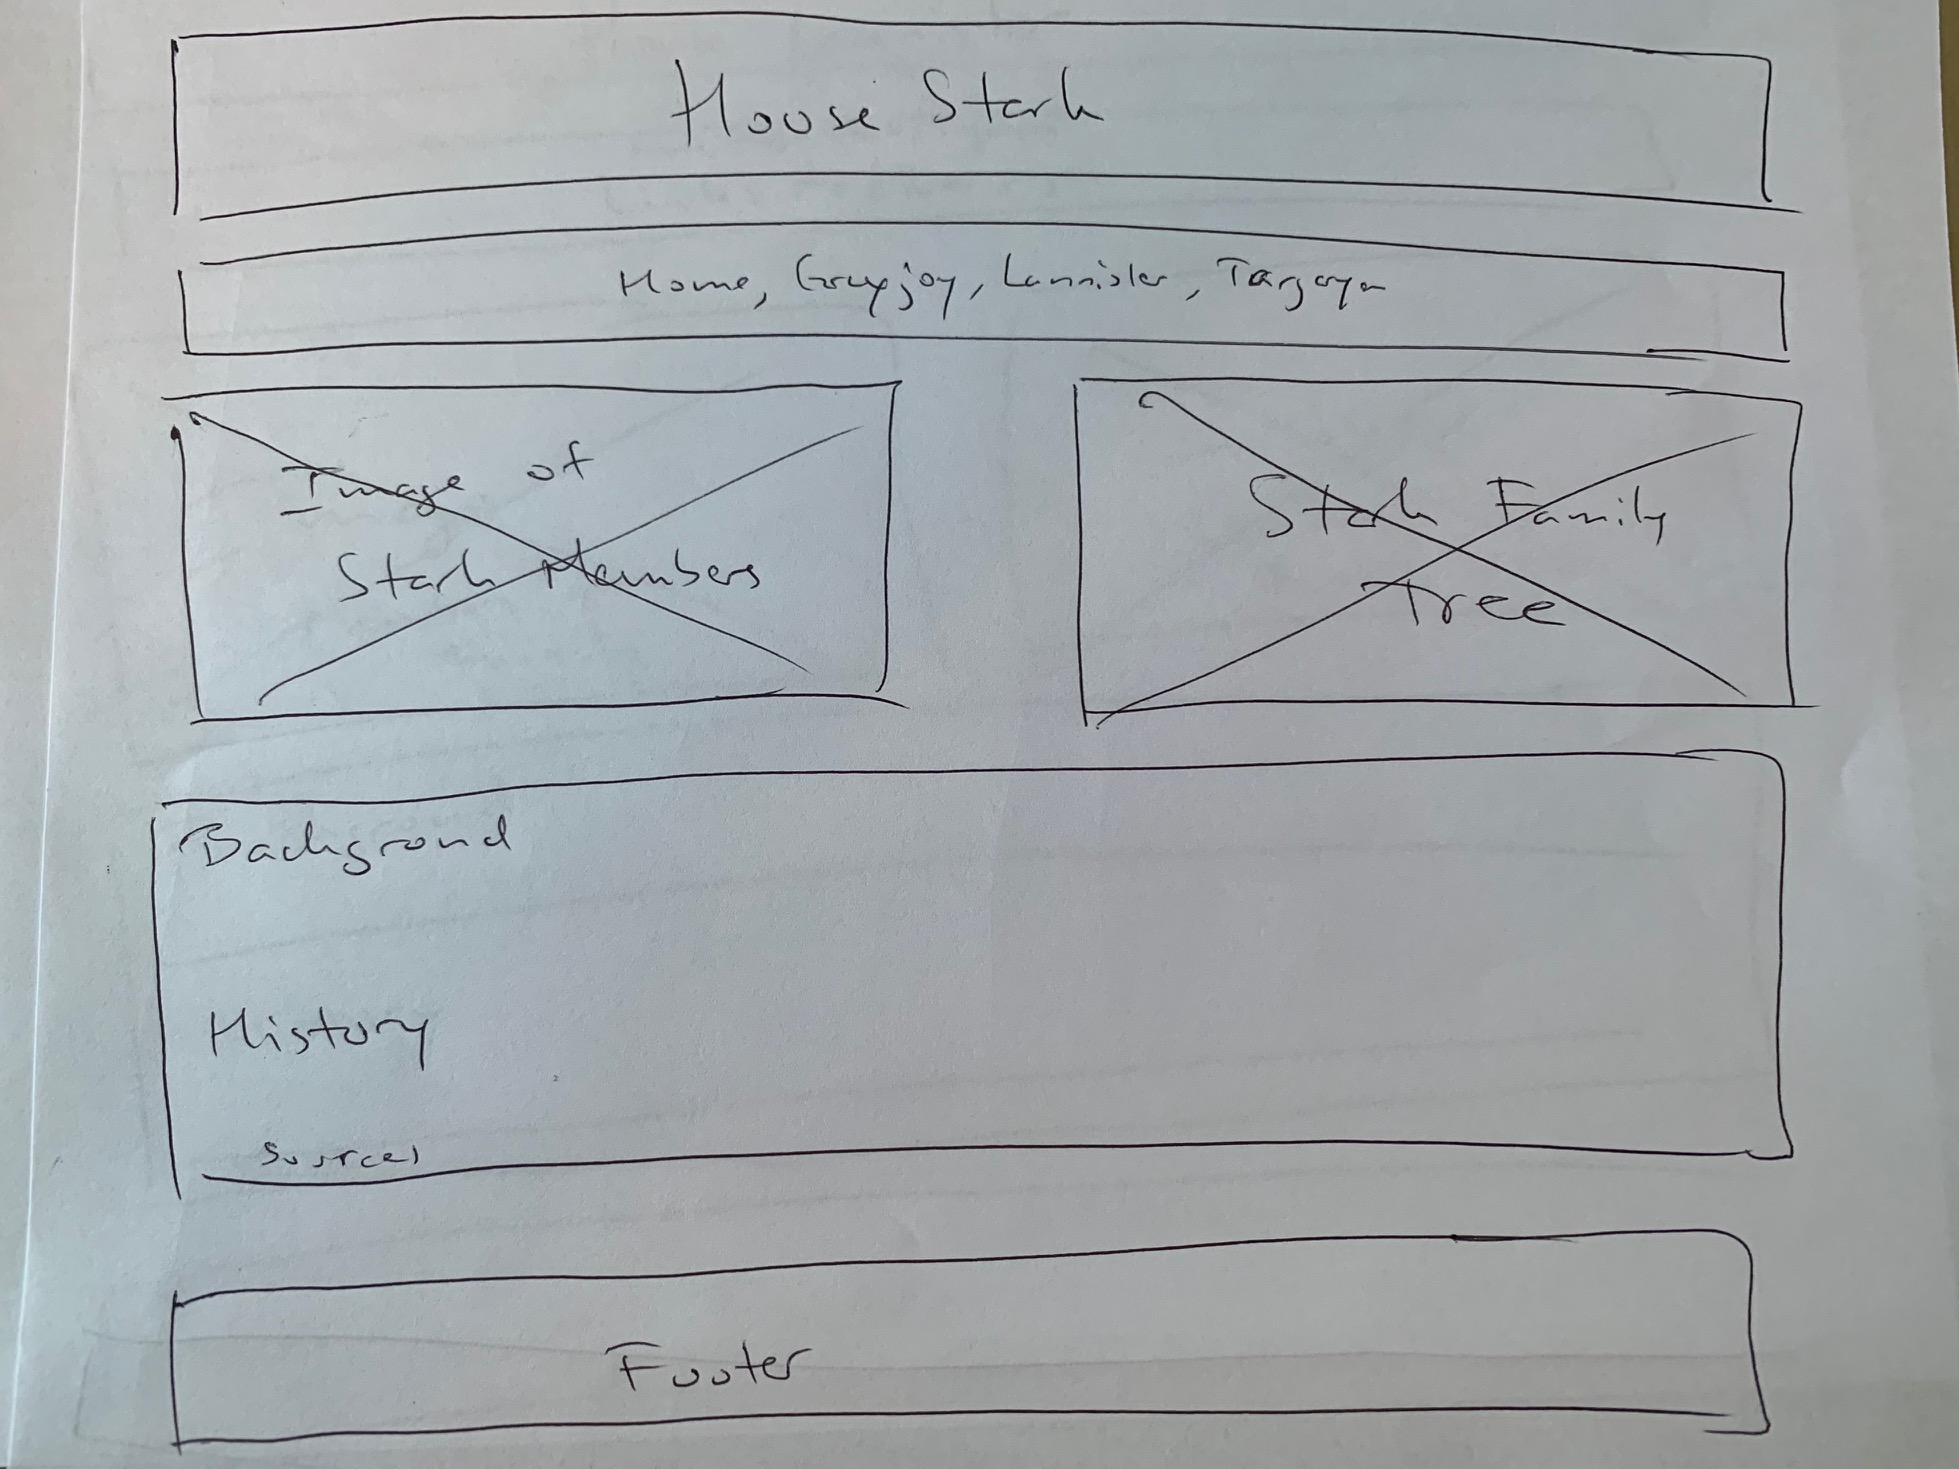 House Stark
Home, Greyjoy, Lannister, Targaryen
Image of
Stark Members
Stark Family
Tree
Background
History
Sources
Footer